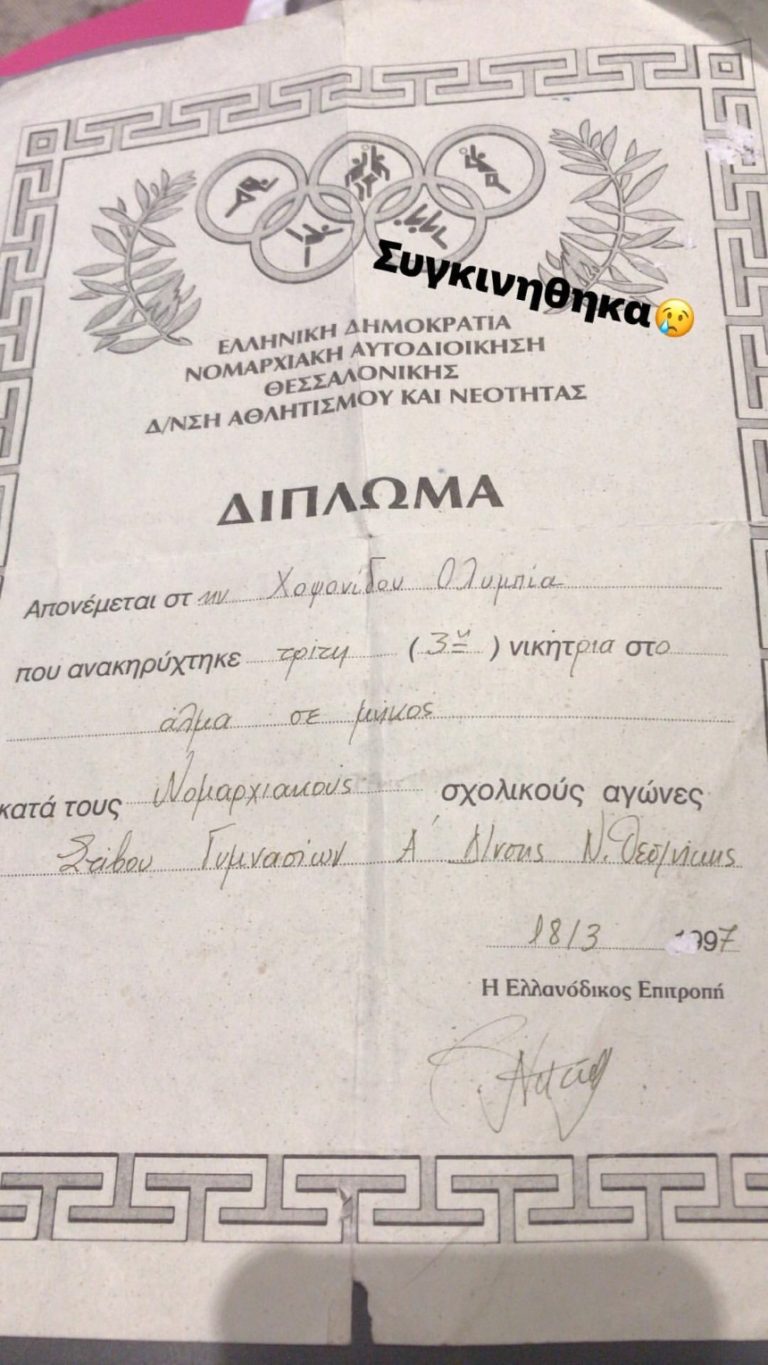 Συγκινηθηκα😢
ΕΛΛΗΝΙΚΗ ΔΗΜΟΚΡΑΤΙΑ
ΝΟΜΑΡΧΙΑΚΗ ΑΥΤΟΔΙΟΙΚΗΣΗ
ΘΕΣΣΑΛΟΝΙΚΗΣ
Δ/ΝΣΗ ΑΘΛΗΤΙΣΜΟΥ ΚΑΙ ΝΕΟΤΗΤΑΣ
ΔΙΠΛΩΜΑ
Απονέμεται στ ην Χοψονίδου Ολυμπία
που ανακηρύχτηκε τρίτη (3η) νικήτρια στο
άλμα σε μήκος
κατά τους Νομαρχιακούς σχολικούς αγώνες
Στίβου Γυμνασίων Α΄ Δ/νσης Ν. Θεσ/νίκης
18/3 1997
Η Ελλανόδικος Επιτροπή